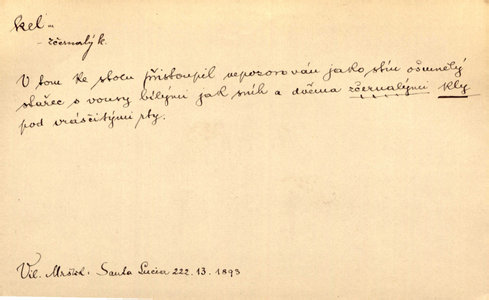 kel –
– zčernalý k.
V tom ke stolu přistoupil nepozorován jako stín ošumělý
stařec s vousy bílými jak sníh a dvěma zčernalými kly
pod vrásčitými rty.
Vil. Mrštík: Santa Lucia 222. 13. 1893